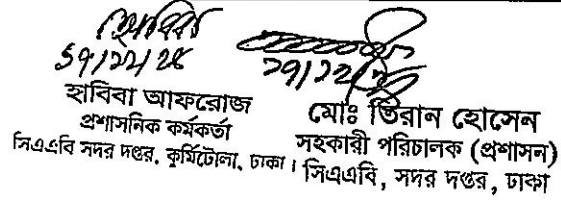 হাবিবা
হাবিবা আফরোজ
প্রশাসনিক কর্মকর্তা
সিএএবি সদর দপ্তর, কুর্মিটোলা, ঢাকা।
মোঃ তিরান হোসেন
সহকারী পরিচালক (প্রশাসন)
সিএএবি, সদর দপ্তর, ঢাকা